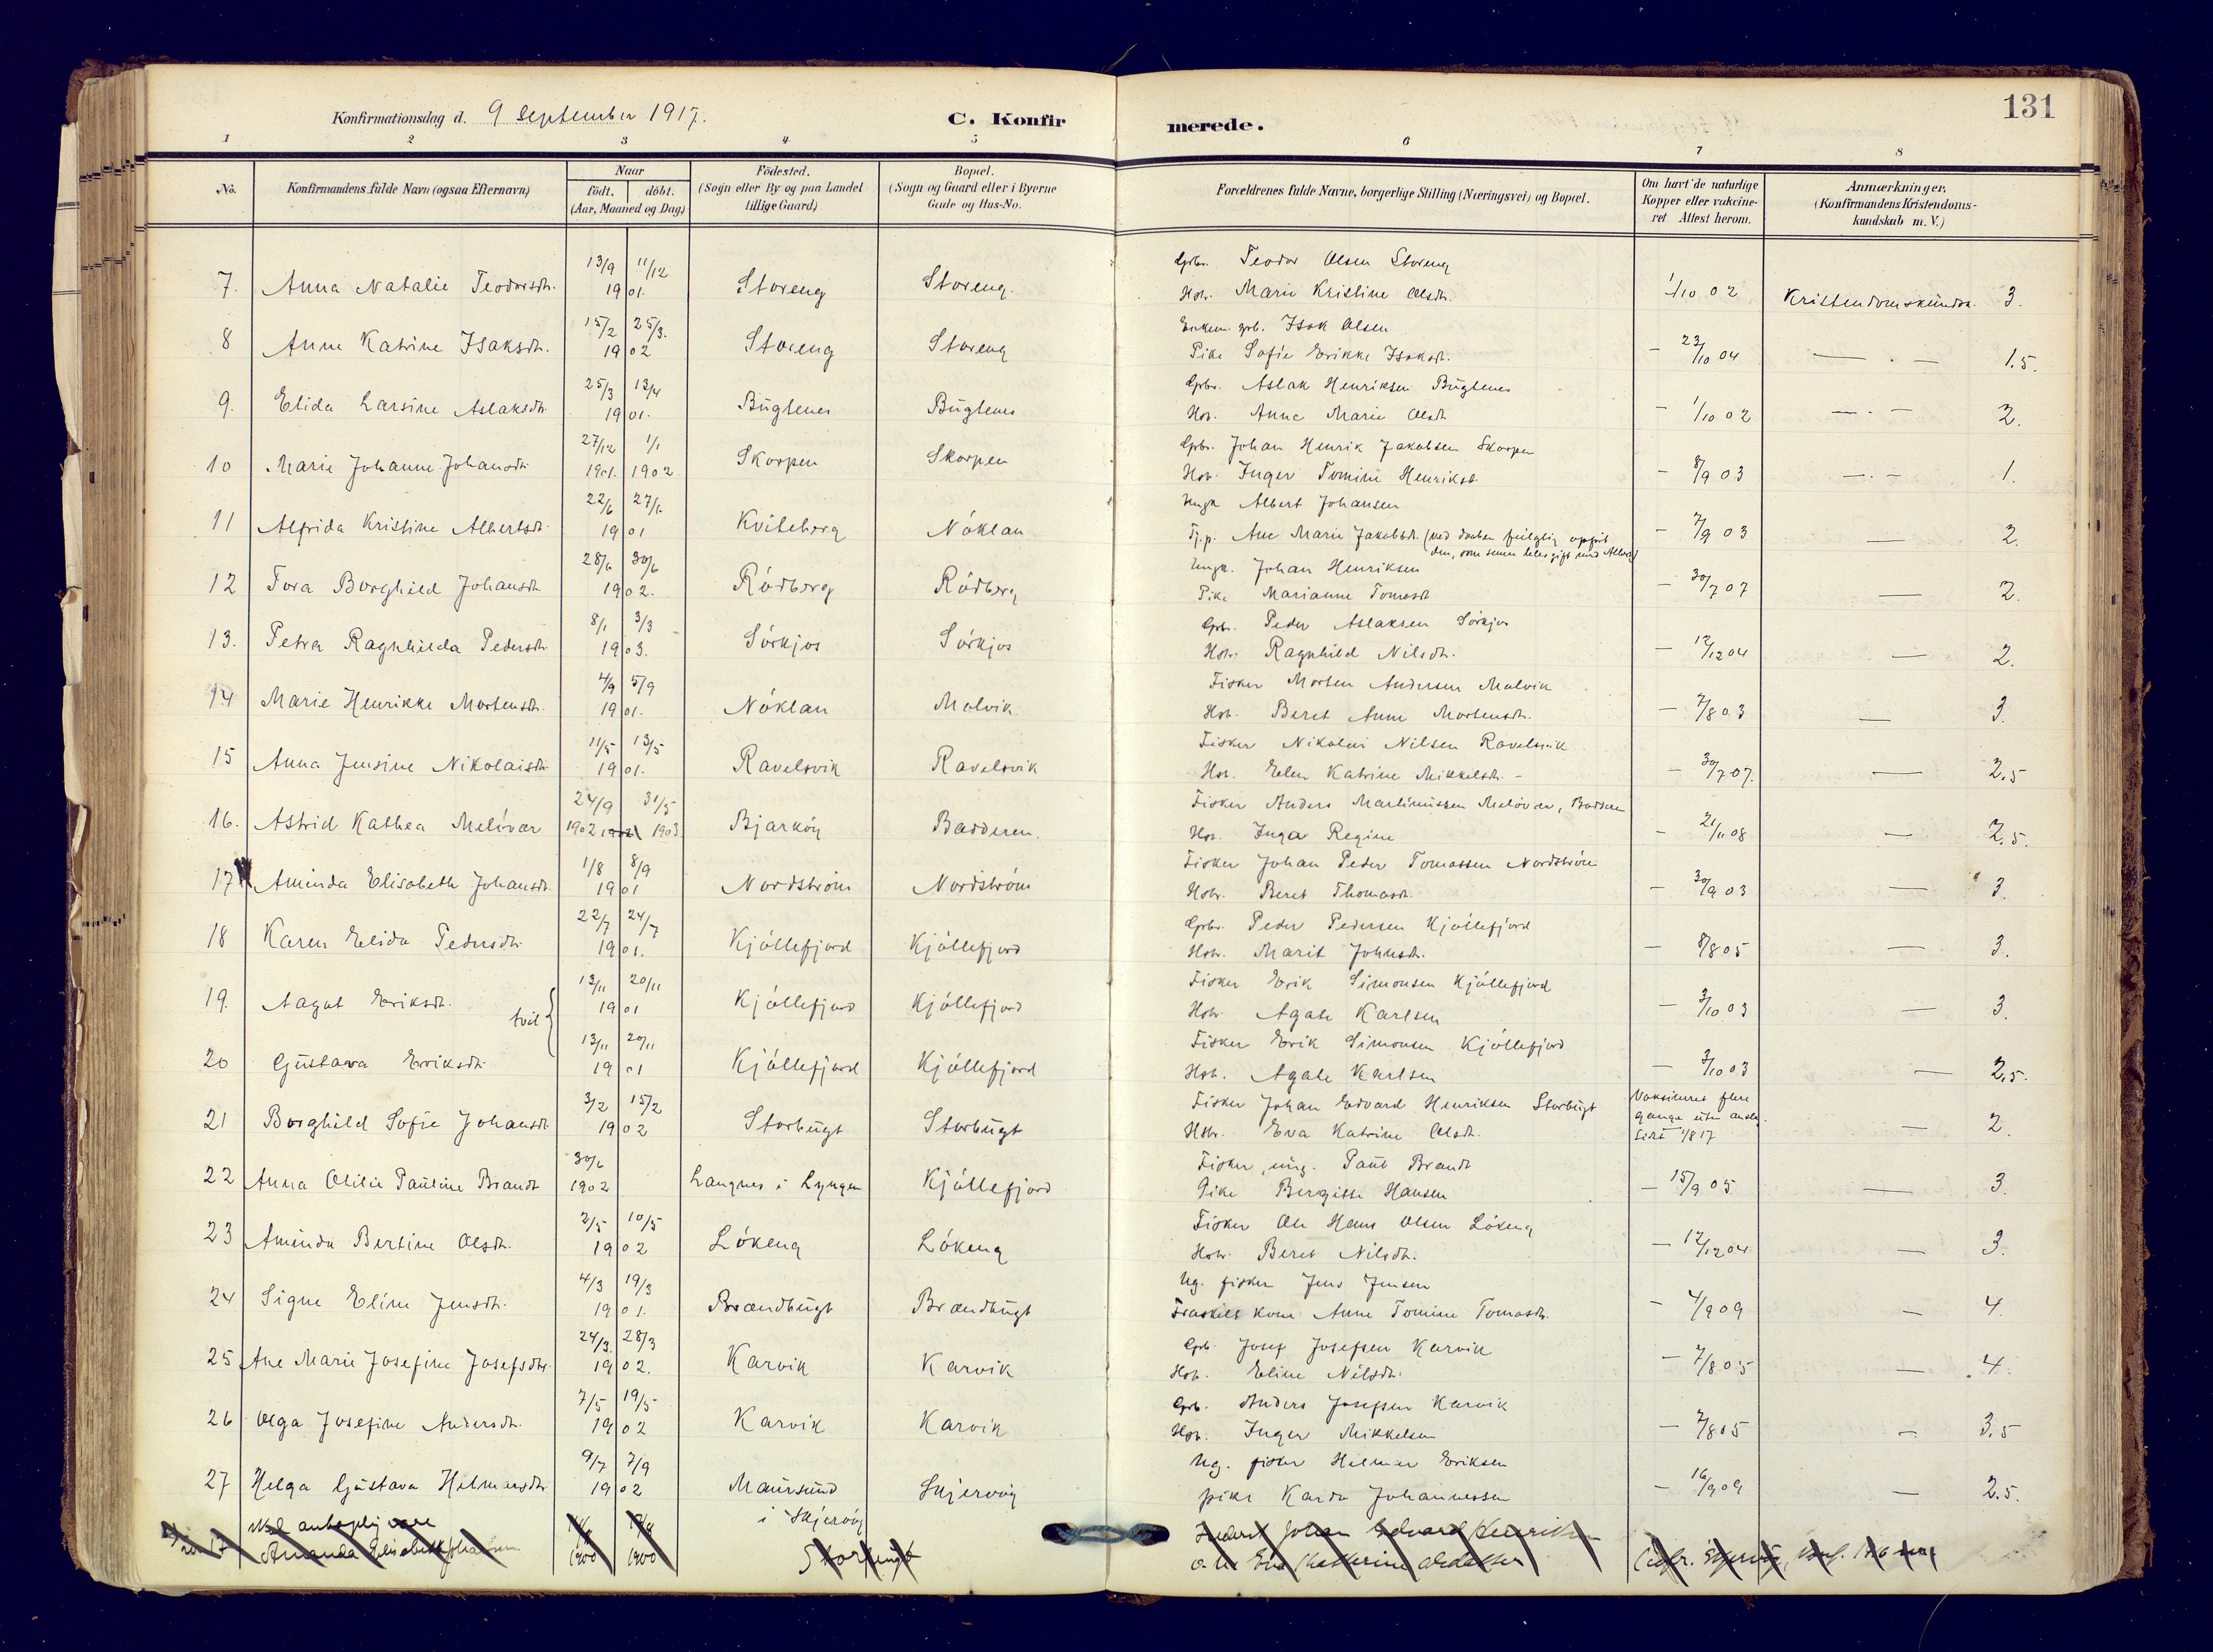 131
Konfirmationsdag d. 9 September 1917.
C. Konfirmerede.
1 2 3 4 5 6 7 8
No.
Konfirmandens fulde Navn (ogsaa Efternavn)
Naar
født. døbt.
(Aar, Maaned og Dag)
Födested.
(Sogn eller By og paa Landet
tillige Gaard)
Bopæl.
(Sogn og Gaard eller i Byerne
Gade og Hus-No.
Forældrenes fulde Navne, borgerlige Stilling (Næringsvei) og Bopæl.
Om havt de naturlige
Kopper eller vakcine-
ret Attest herom.
Anmærkninger.
(Konfirmandens Kristendoms-
kundskab m. V.)
7. Anna Natalie Teodorsdt. 13/9 11/12 1901. Storeng Storeng. Grbr. Teodor Olsen Storeng
Hstr. Marie Kristine Olsdt. 1/10 02 Kristendomskundsk. 3.
8 Anne Katrine Isaksdt. 15/2 25/3. 1902 Storeng Storeng Enkem. grb. Isak Olsen
Pike Sofie Erikke Isaksdt. — 23/10 04 — . — 1.5.
9. Elida Larsine Aslaksdt. 25/3 13/4 1901. Bugtenes Bugtenes Grbr. Aslak Henriksen Bugtenes
Hstr. Anne Marie Olsdt — 1/10 02 — . — 2.
10 Marie Johanne Johansdt. 27/12 1/1 1901. 1902 Skorpen Skorpen Grbr. Johan Henrik Jakobsen Skorpen
Hstr. Inger Tomine Henriksd. — 8/9 03 — . — 1.
11 Alfrida Kristine Albertsdt. 22/6 27/6 1901 Kviteberg Nöklan Ungk. Albert Johansen
Tj.p. Ane Marie Jakobsdt. (ved daaben feilagtig opgit
den, som senere blev gift med Albert) — 7/9 03 — 2.
12 Tora Borghild Johansdt 28/6 30/6 1902. Rödberg Rödberg Ungk. Johan Henriksen
Pike Marianne Tomasdt — 30/7 07 — 2.
13. Petra Ragnhilda Pedersdt. 8/1 3/3 1903. Sörkjos Sörkjos Grbr. Peder Aslaksen Sörkjos
Hstr. Ragnhild Nilsdt. — 12/12 04 — 2.
14 Marie Henrikke Mortensdt. 4/9 5/9 1901. Nöklan Malvik Fisker Morten Andersen Malvik
Hstr. Beret Anne Mortensdt. — 7/8 03 — 3.
15 Anna Jensine Nikolaisdt. 11/5 13/5 1901. Ravelsvik Ravelsvik Fisker Nikolai Nilsen Ravelsvik
Hstr. Elen Katrine Mikkelsdt. — 30/7 07. — 2.5
16. Astrid Kathea Melövær 24/9 31/5 1902 1903 Bjarköy Badderen. Fisker Anders Martinussen Melövær, Badderen
Hstr. Inga Regine — 21/11 08 — 2.5.
17 Aminda Elisabeth Johansdt. 1/8 8/9 1901 Nordström Nordström Fisker Johan Peder Tomassen Nordström
Hstr. Beret Thomasdt. — 30/9 03 — 3.
18 Karen Elida Pedersdt. 22/7 24/7 1901. Kjöllefjord Kjöllefjord Grbr. Peder Pedersen Kjöllefjord
Hstr. Marit Johnsdt. — 8/8 05 — 3.
19. Aagot Eriksdt. tvil 13/11 20/11 1901 Kjöllefjord Kjöllefjord Fisker Erik Simonsen Kjöllefjord
Hstr. Agate Karlsen — 3/10 03 — 3.
20 Gustava Eriksdt. 13/11 20/11 1901 Kjöllefjord Kjöllefjord Fisker Erik Simonsen Kjöllefjord
Hstr. Agate Karlsen — 3/10 03 — 2.5.
21 Borghild Sofie Johansdt 3/2 15/2 1902 Storbugt Storbugt Fisker Johan Edvard Henriksen Storbugt
Hstr. Eva Katrine Olsdt. Vaksineret flere
gange uten
sidst 1/8 17 — 2.
22 Anna Otilie Pauline Brandt 30/6 1902 Langnes i Lyngen Kjöllefjord Fisker, ung. Paul Brandt
Pike Bergitte Hansen — 15/9 05 — 3.
23 Aminda Bertine Olsdt. 2/5 10/5 1902 Lökeng Lökeng Fisker Ole Hans Olsen Lökeng
Hstr. Beret Nilsdt. — 12/12 04 — 3.
24 Signe Eline Jensdt. 4/3 19/3 1901. Brændbugt Brændbugt Ug. fisker Jens Jensen
Fraskilt kone Anne Tomine Tomasdt. — 4/9 09 — 4.
25 Ane Marie Josefine Josefsdtr. 24/3. 28/3 1902. Karvik Karvik Grb. Josef Josefsen Karvik
Hstr. Eline Nilsdt. — 7/8 05 — 4.
26 Olga Josefine Andersdt. 7/5 19/5 1902 Karvik Karvik Grb. Anders Josefsen Karvik
Hstr. Inger Mikkelsen — 7/8 05 — 3.5
27 Helga Gustava Hilmarsdt. 9/7 7/9 1902 Maursund
i Skjervöy Skjervöy Ug. fisker Hilmar Eriksen
pike Karda Johannessen — 16/9 09 — 2.5.
skal antagelig være
no 17 Amanda Elisabeth Johansen 1900 1900 Storbugt Johan Edvard Henriksen
o. h. Eva Katherine